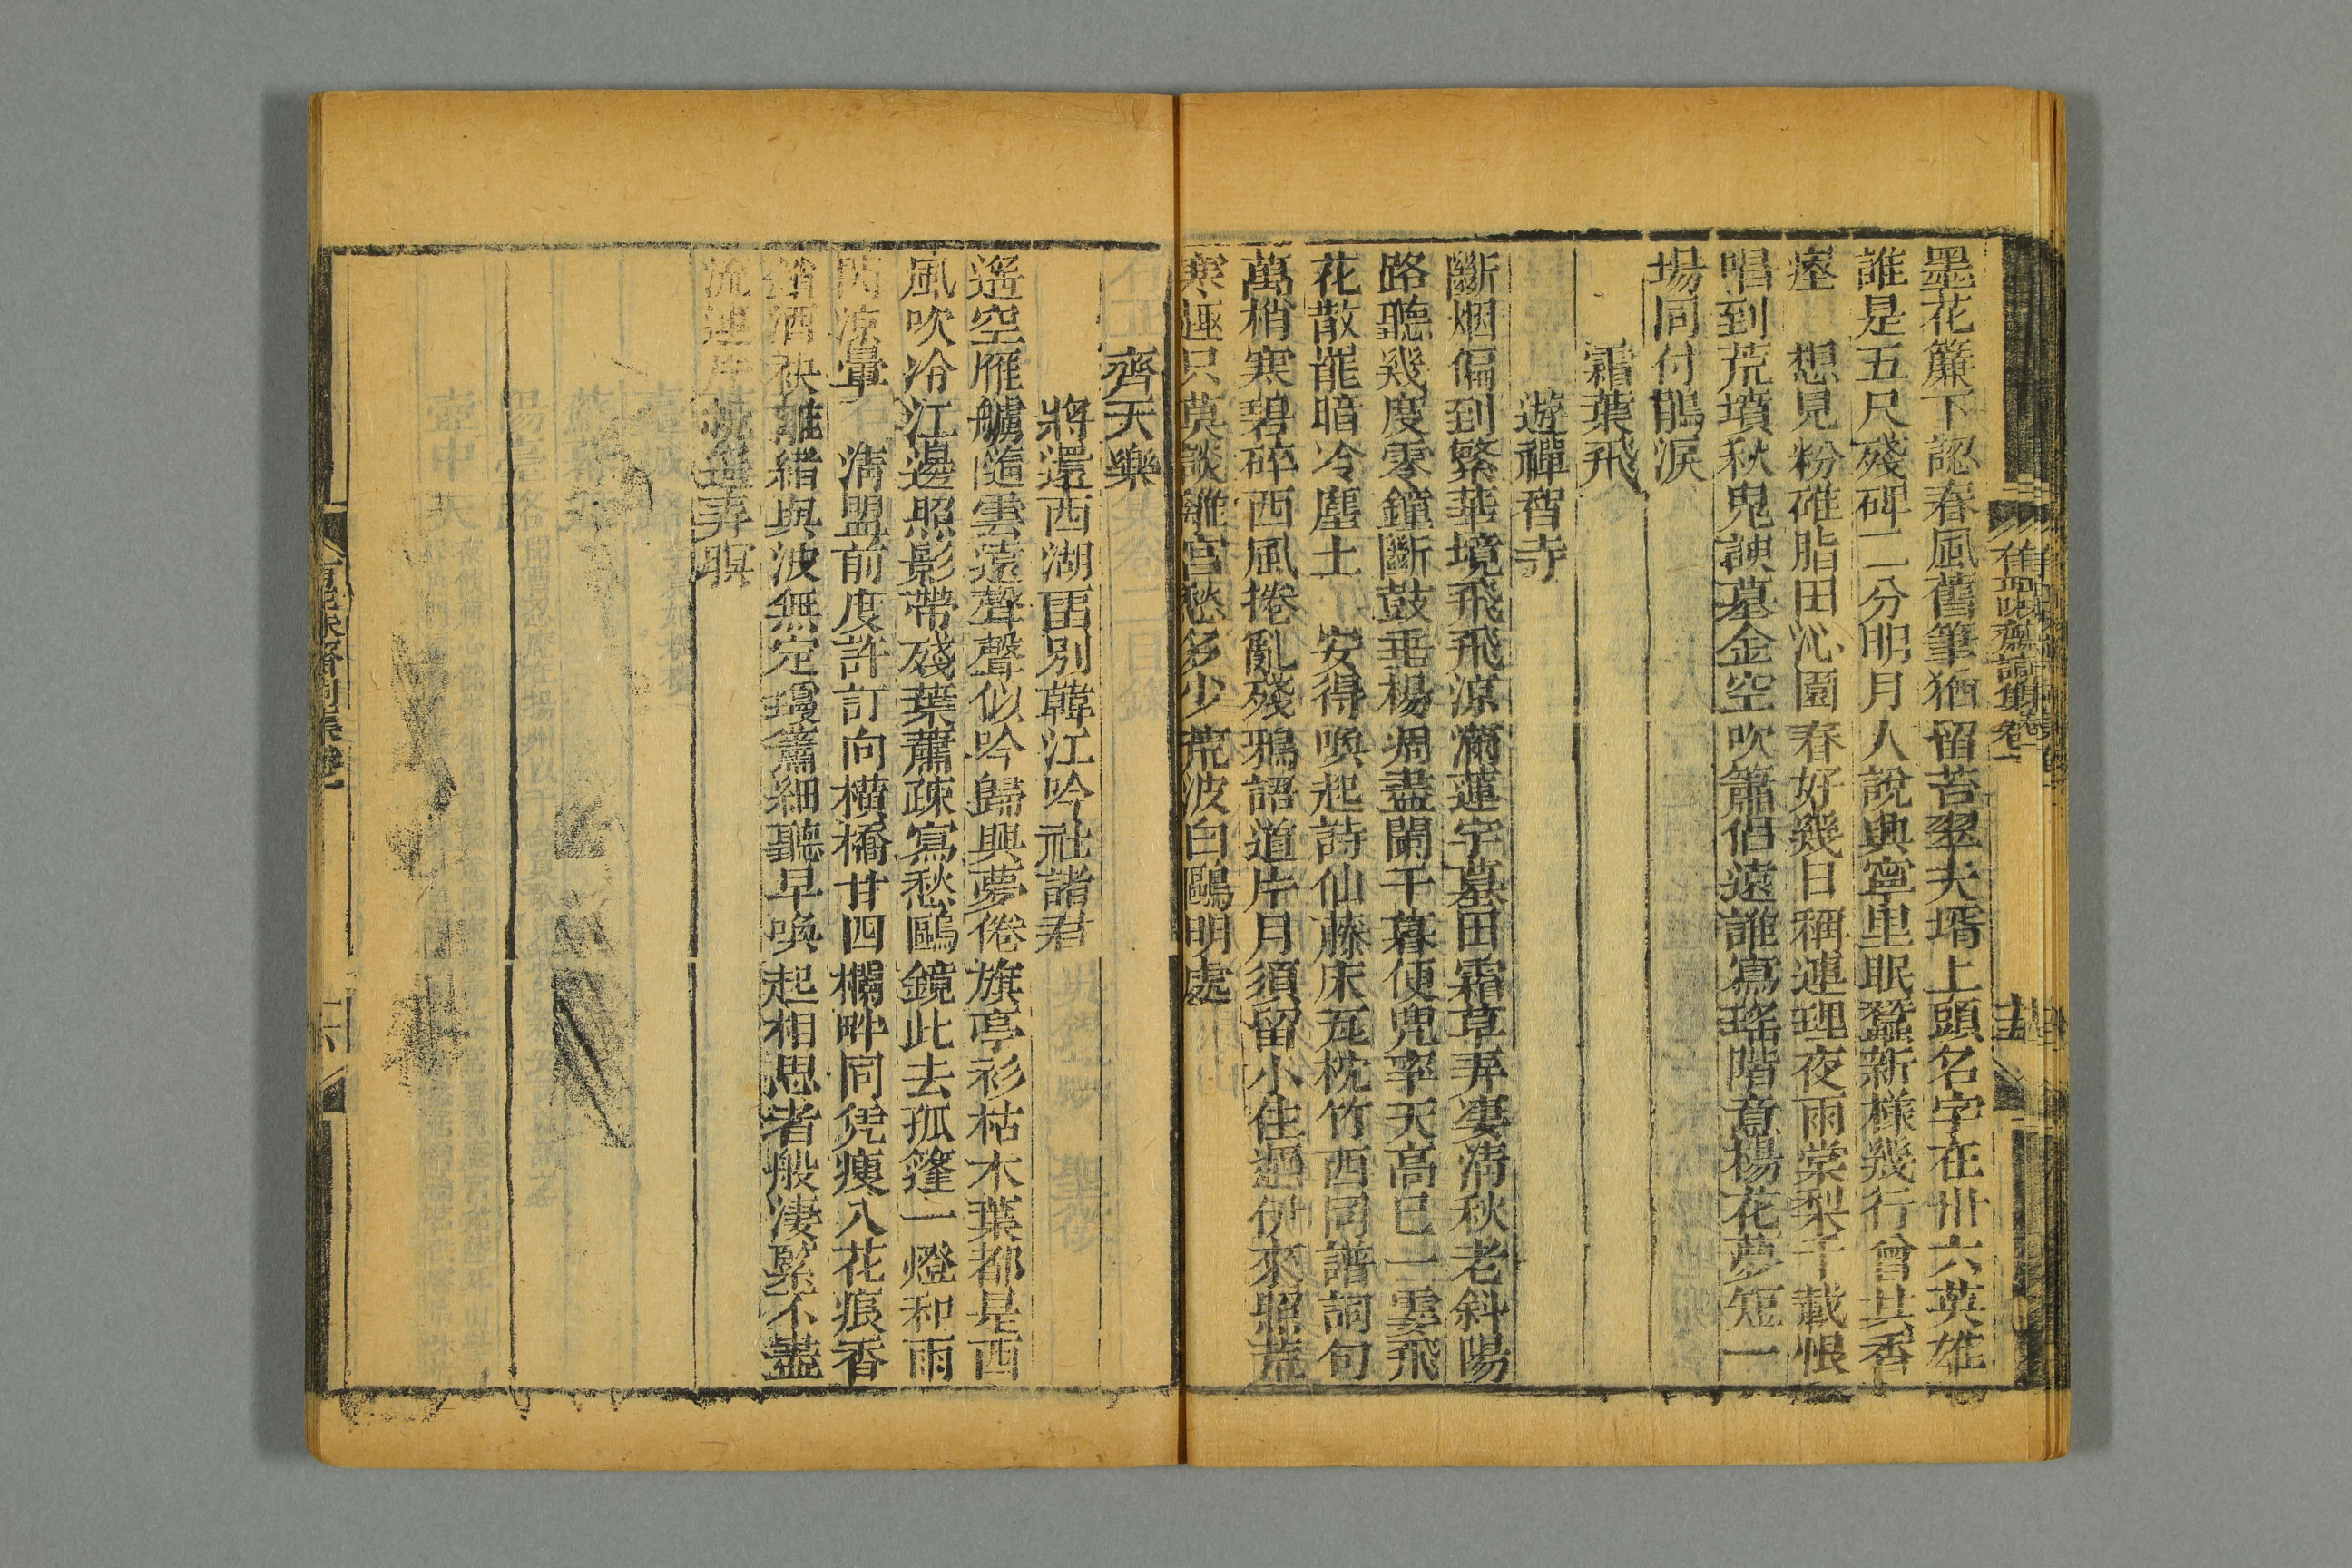 墨花簾下認春風舊筆猶留苔翠夫壻上頭名字在卅六英雄
誰是五尺殘碑二分明月人說與寧里眠蠶新樣幾行曾共香
瘞　想見粉碓脂田沁園春好幾日稱連理夜雨棠梨千載恨
唱到荒墳秋鬼諛墓金空吹簫侶遠誰寫瑤階意楊花夢短一
場同付鵑淚
霜葉飛
遊禪智寺
斷烟偏到繁華境飛飛涼滿蓮宇墓田霜草弄淒清秋老斜陽
路聽幾度零鐘斷鼓垂楊凋盡闌干暮便兜率天高已一霎飛
花散龍暗冷塵土　安得喚起詩仙藤床瓦枕竹西同譜詞句
萬梢寒碧碎西風捲亂殘鴉語道片月須留小住還伊來照荒
寒極只莫談離宮愁多少荒波白鷗明處
齊天樂
將還西湖畱別韓江吟社諸君
遙空雁艣隨雲遠聲聲似吟歸興夢倦旗亭衫枯木葉都是西
風吹冷江邊照影帶殘葉蕭疎寫愁鷗鏡此去孤篷一燈和雨
閃凉暈　清盟前度許訂向橫橋廿四欄畔同凭瘦八花痕香
銷酒袂離緒與波無定瓊簫細聽早喚起相思者般淒緊不盡
流連片帆遙弄暝
有正味齋詞集卷一